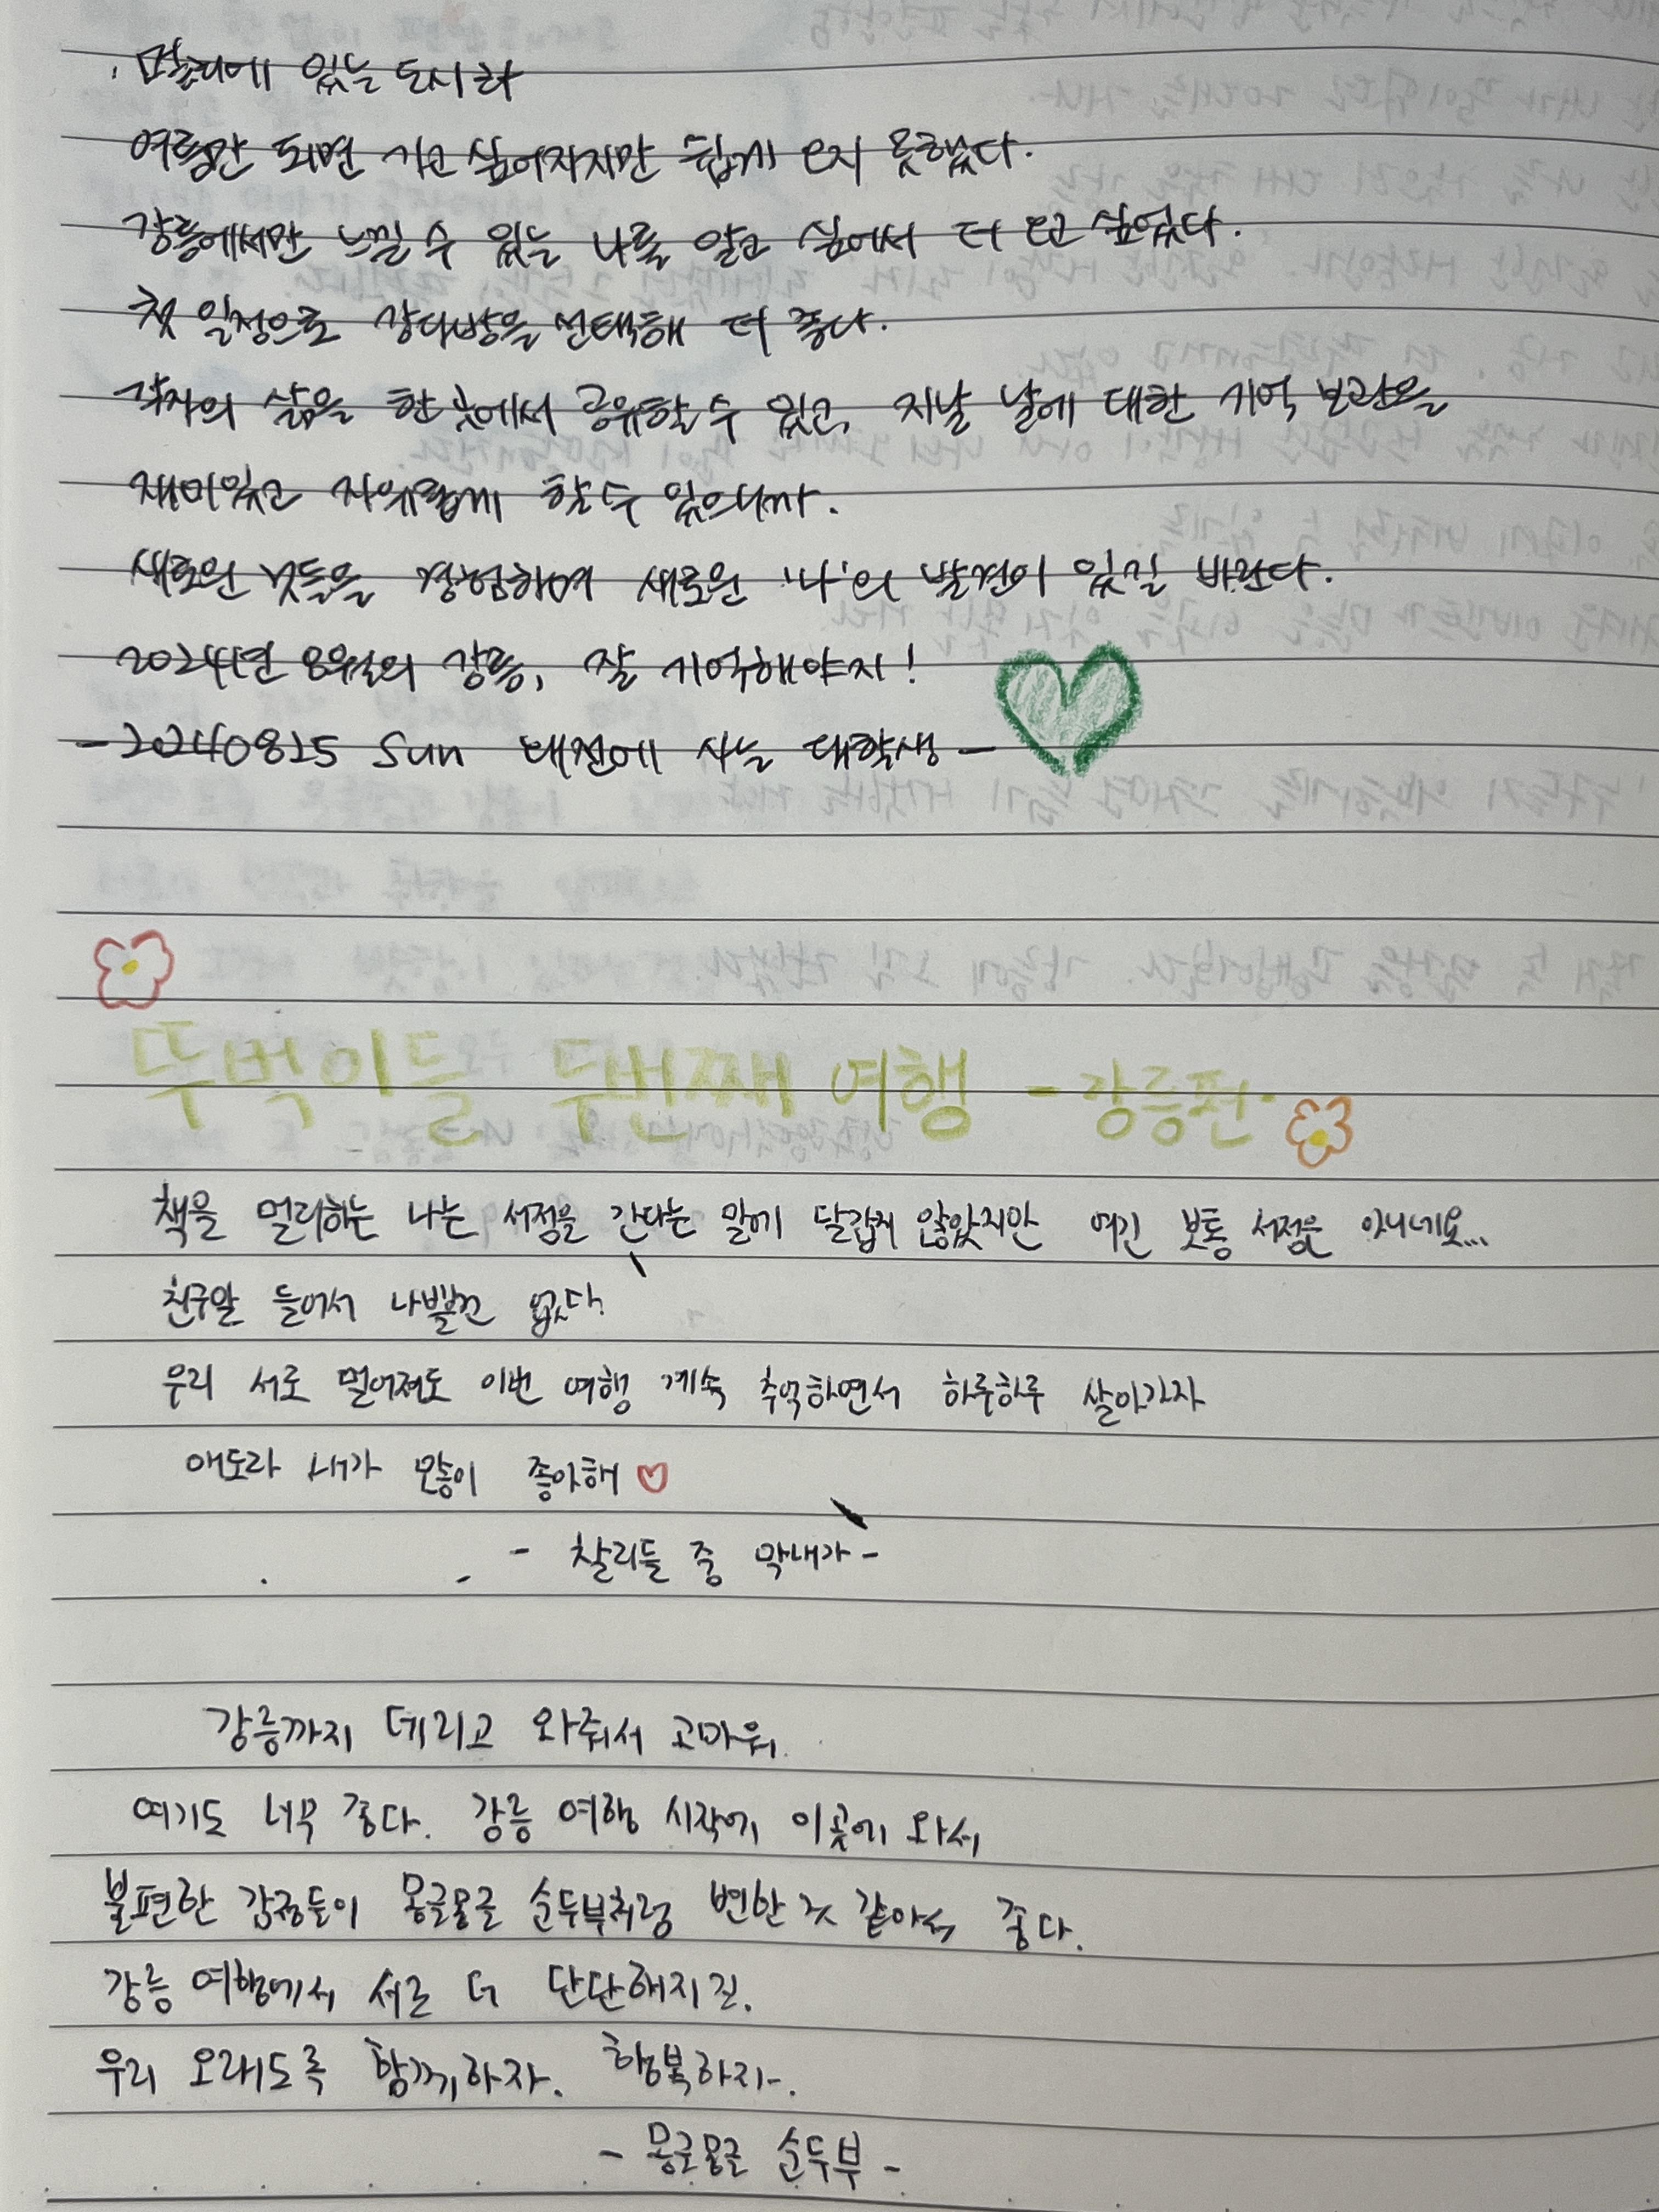 멀리에 있는 도시라
여름만 되면 가고 싶어지지만 쉽게 오지 못했다.
강릉에서만 느낄 수 있는 나를 알고 싶어서 더 오고 싶었다.
첫 일정으로 강다방을 선택해 더 좋다.
각자의 삶을 한 곳에서 공유할 수 있고, 지날 날에 대한 기억 보관을
재미있고 자유롭게 할 수 있으니까.
새로운 것들을 경험하며 새로운 '나'의 발견이 있길 바란다.
2024년 8월의 강릉, 잘 기억해야지!
-20240825 Sun 대전에 사는 대학생-
뚜벅이들 두번째 여행 - 강릉편.
책을 멀리하는 나는 서점을 간다는 말에 달갑지 않았지만 여긴 보통 서점은 아니네요...
친구말 들어서 나쁠건 없다.
우리 서로 멀어져도 이번 여행 계속 추억하면서 하루하루 살아가자
애도라 내가 많이 좋아해
- 찰리들 중 막내가 -
강릉까지 데리고 와줘서 고마워.
여기도 너무 좋다. 강릉 여행 시작에 이곳에 와서
불편한 감정들이 몽글몽글 순두부처럼 변한 것 같아서 좋다.
강릉 여행에서 서로 더 단단해지길.
우리 오래도록 함께하자. 행복하자.
- 몽글몽글 순두부 -